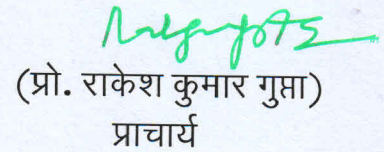 (प्रो. राकेश कुमार गुप्ता)
प्राचार्य